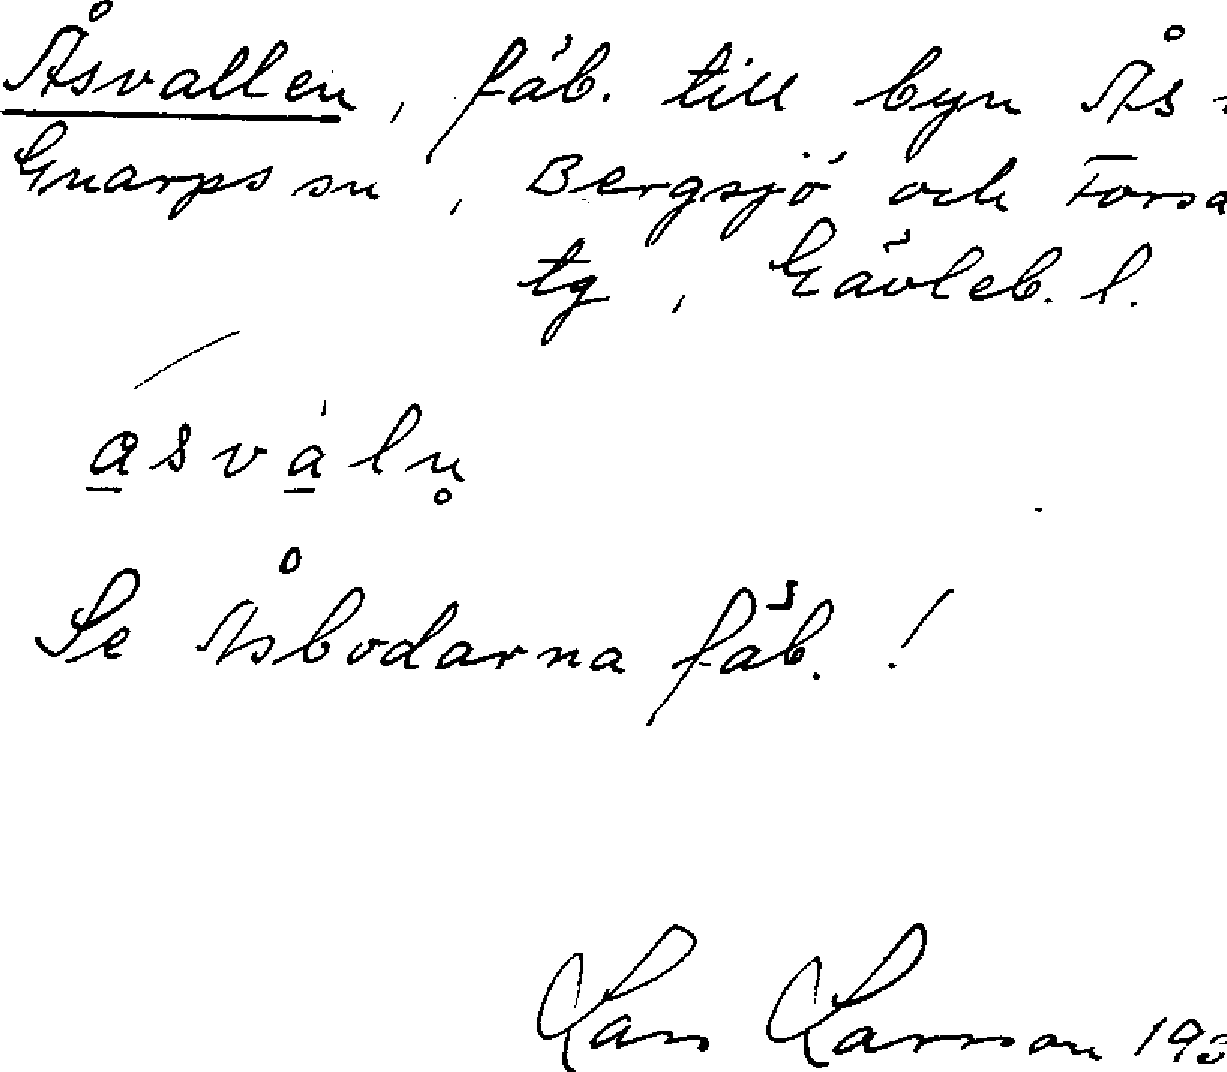 Åsvallen, fäb. till byn Ås
Gnarps sn, Bergsjö och Forsa
tg, Gävleb. l.
åsvàln̥
Se Åsbodarna fäb.!
Lars Larsson 193